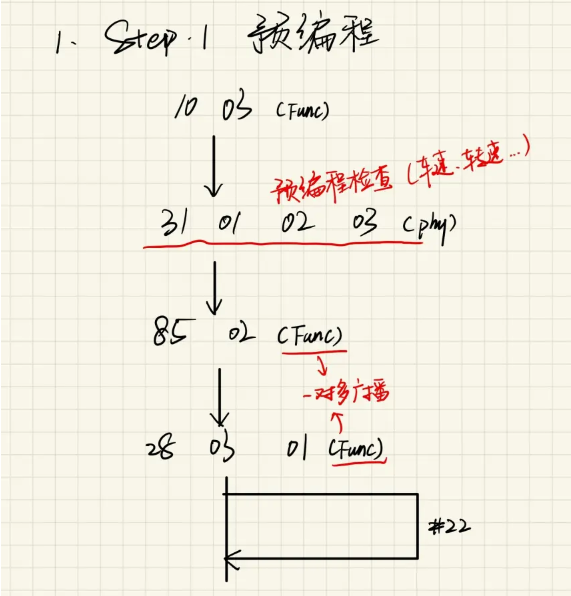 1. Step.1 预编程
10 03 (Func)
预编程检查 (车速、转速...)
31 01 02 03 (phy)
85 02 (Func)
一对多广播
28 03 01 (Func)
#22